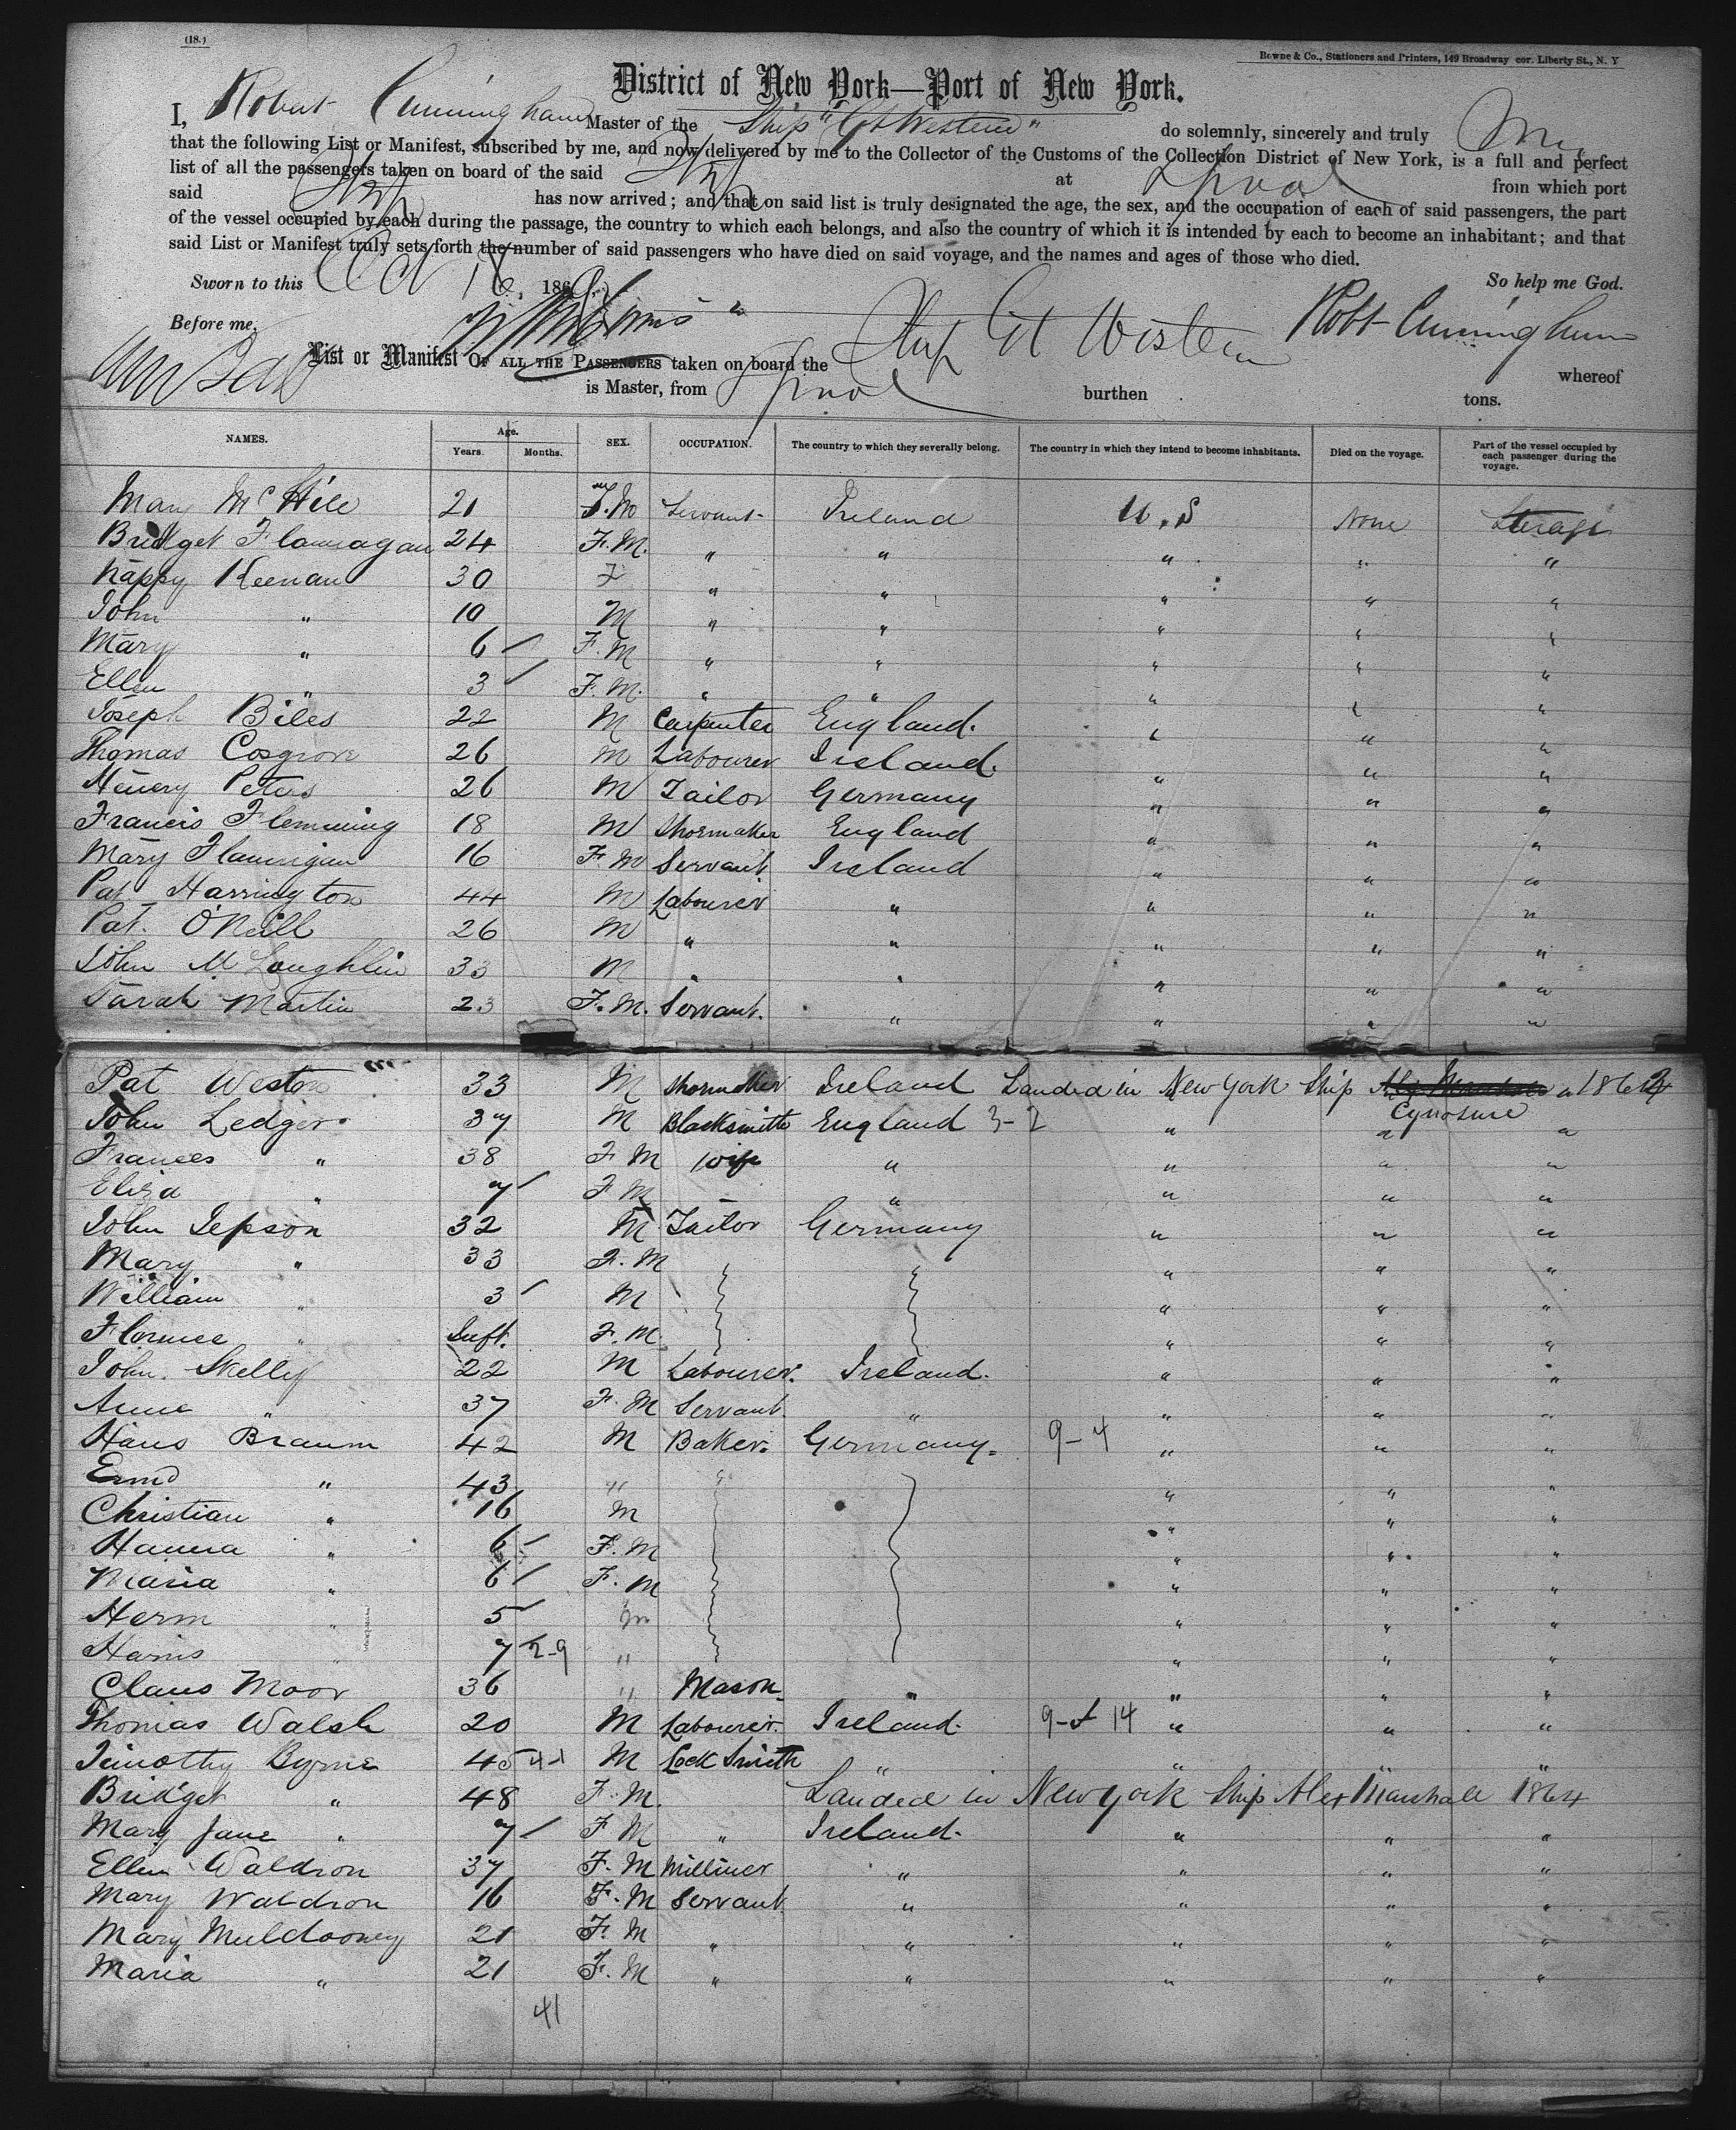 (18.)
Bowne & Co., Stationers and Printers, 149 Broadway cor. Liberty St., N. Y
District of New York—Port of New York.
I, Robert Cunningham Master of the Ship "Gt Western" do solemnly, sincerely and truly
that the following List or Manifest, subscribed by me, and now delivered by me to the Collector of the Customs of the Collection District of New York, is a full and perfect
list of all the passengers taken on board of the said Ship at Lpool from which port
said Ship has now arrived; and that on said list is truly designated the age, the sex, and the occupation of each of said passengers, the part
of the vessel occupied by each during the passage, the country to which each belongs, and also the country of which it is intended by each to become an inhabitant; and that
said List or Manifest truly sets forth the number of said passengers who have died on said voyage, and the names and ages of those who died.
Sworn to this Oct 16, 186 So help me God.
Before me, Robt Cunningham
List or Manifest OF ALL THE PASSENGERS taken on board the Ship Gt Western whereof
is Master, from Lpool burthen tons.
NAMES. Age. Years. Months. SEX. OCCUPATION. The country to which they severally belong. The country in which they intend to become inhabitants. Died on the voyage. Part of the vessel occupied by each passenger during the voyage.
Mary McHile 21 F.M Servant Ireland U.S None Sterage
Bridget Flannagan 24 F.M. " " " " "
Nappy Keenan 30 F " " " " "
John " 10 M " " " " "
Mary " 6 F.M " " " " "
Ellen " 3 F.M. " " " " "
Joseph Biles 22 M Carpenter England. " " "
Thomas Cosgrove 26 M Labourer Ireland. " " "
Henery Peters 26 M Tailor Germany " " "
Francis Flemming 18 M Shoemaker England " " "
Mary Flannigan 16 F.M Servant Ireland " " "
Pat Harrington 44 M Labourer " " " "
Pat. O'Neill 26 M " " " " "
John McLoughlin 33 M " " " " "
Sarah Martin 23 F.M. Servant. " " " "
Pat Weston 33 M Shoemaker Ireland Landed in New York Ship Cynosure 1864
John Ledger 37 M Blacksmith England 3-2 " " "
Frances " 38 F M Wife " " " "
Eliza " 7 F M " " " "
John Jepson 32 M Tailor Germany " " "
Mary " 33 F.M " " "
William " 3 M " " "
Florence " Inft. F.M. " " "
John Skelly 22 M Labourer. Ireland. " " "
Anne " 37 F.M Servant. " " " "
Hans Braum 42 M Baker. Germany. 9-4 " " "
" 43 " " " "
Christian " 16 M " " "
Hanna " 6 F.M " " "
Maria " 6 F.M " " "
Herm " 5 M " " "
Harris " 7 2-9 " " " "
Claus Moor 36 " Mason. " " " "
Thomas Walsh 20 M Labourer. Ireland. 14 " " "
Timothy Byrne 45 M Lock Smith " " " "
Bridget " 48 F.M. Landed in New York Ship Alex Marshall 1864
Mary Jane " 7 F M " Ireland. " " "
Ellen Waldron 37 F.M Milliner " " " "
Mary Waldron 16 F.M Servant " " " "
Mary Muldooney 21 F.M " " " " "
Maria " 21 F.M " " " " "
41